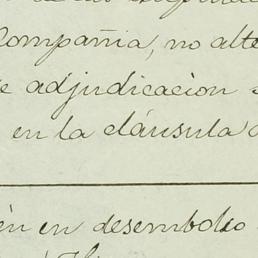 Compañia, no alte
e adjudicacion
en la cláusula
en en desembolso